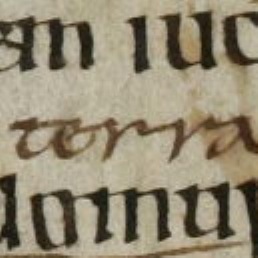 an iud
terra
domup